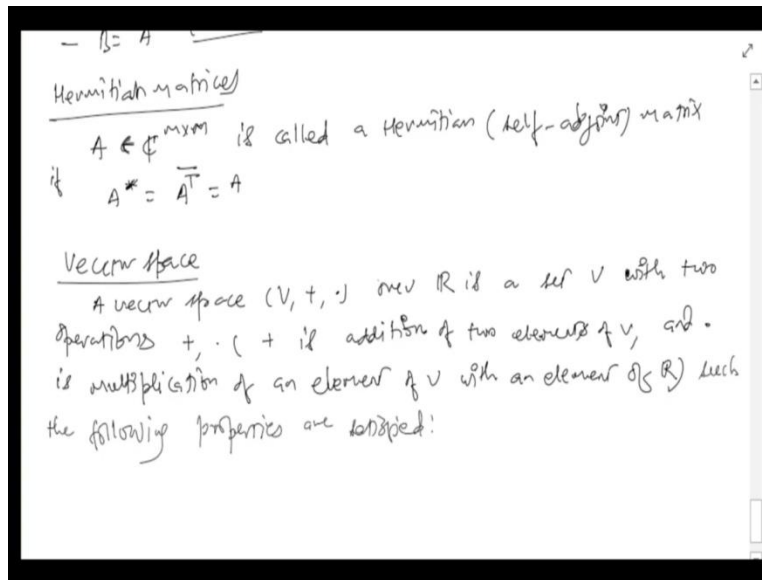 - B = A
Hermitian matrices
A ∈ ℂ^{m×m} is called a Hermitian (self-adjoint) matrix
if A* = \overline{A^T} = A
Vector space
A vector space (V, +, ·) over ℝ is a set V with two
operations +, · ( + is addition of two elements of V, and ·
is multiplication of an element of V with an element of ℝ) such
the following properties are satisfied: